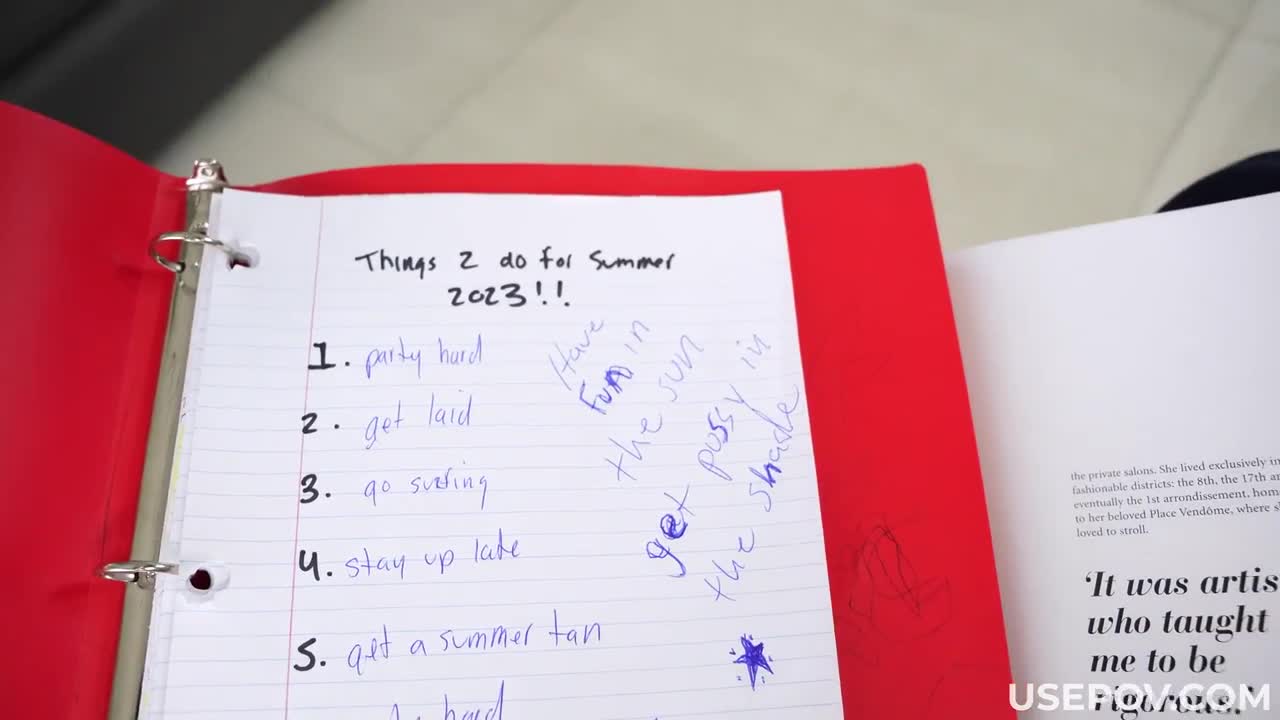 Things 2 do for summer
2023!!
1. party hard
2. get laid
3. go surfing
4. stay up late
5. get a summer tan
hard
Have
FUN in
the sun
get pussy in
the shade
the private salons. She lived exclusively in
fashionable districts: the 8th, the 17th an
eventually the 1st arrondissement, hom
to her beloved Place Vendôme, where s
loved to stroll.
‘It was artis
who taught
me to be
rigorous.’
USEPOV.COM